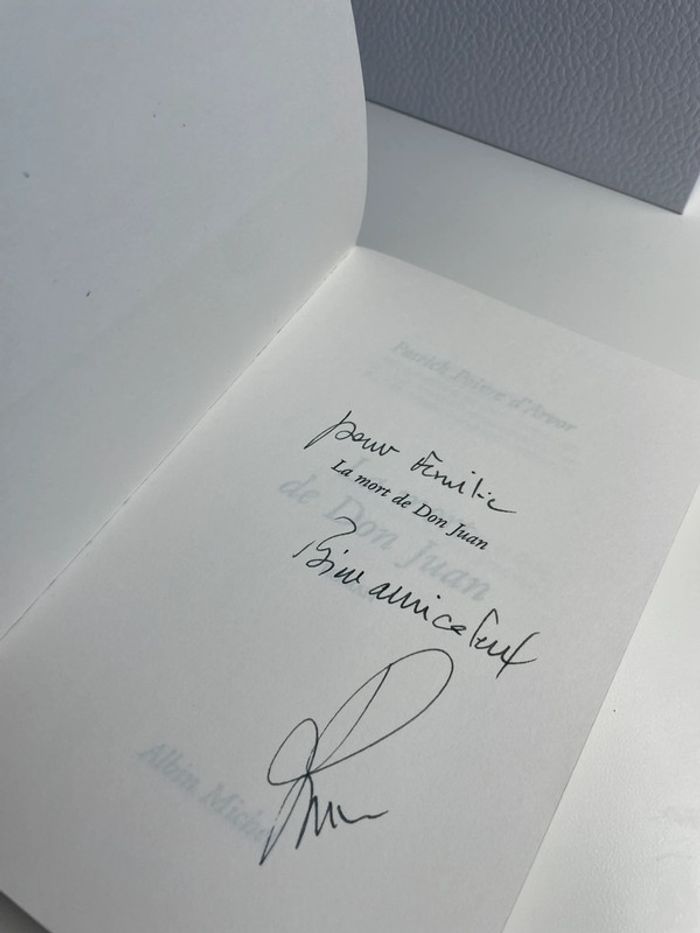 Patrick Poivre d'Arvor
pour Emilie
La mort de Don Juan
de Don Juan
Bien amicalement
Albin Michel